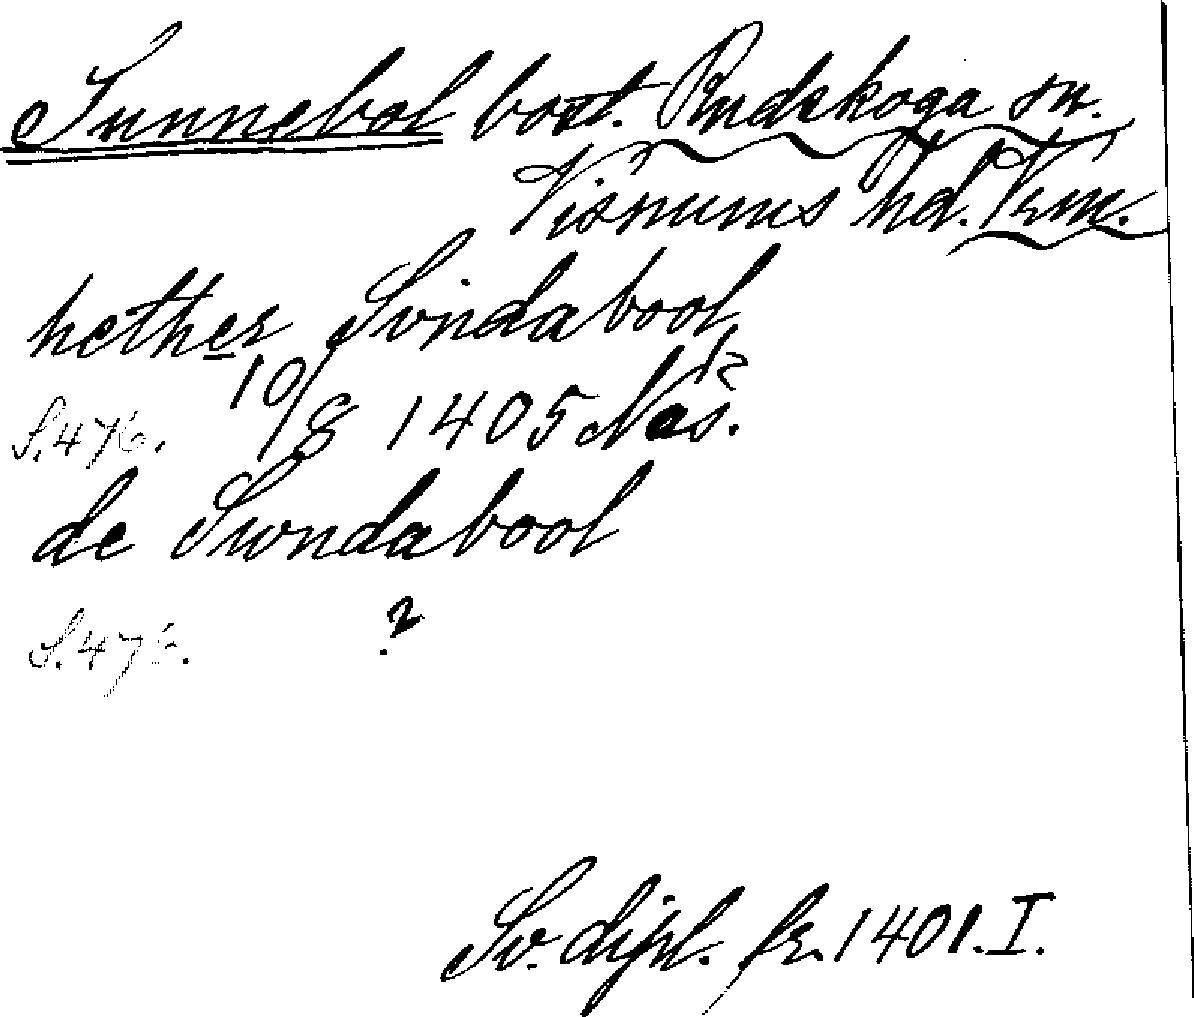 Sunnebol bost. Rudskoga sn.
Visnums hd. Vrm.
hether Svndabool
S. 476. 10/8 1405 Nos. 12
de Swndabool
S. 476. ?
Sv. dipl. fr. 1401. I.